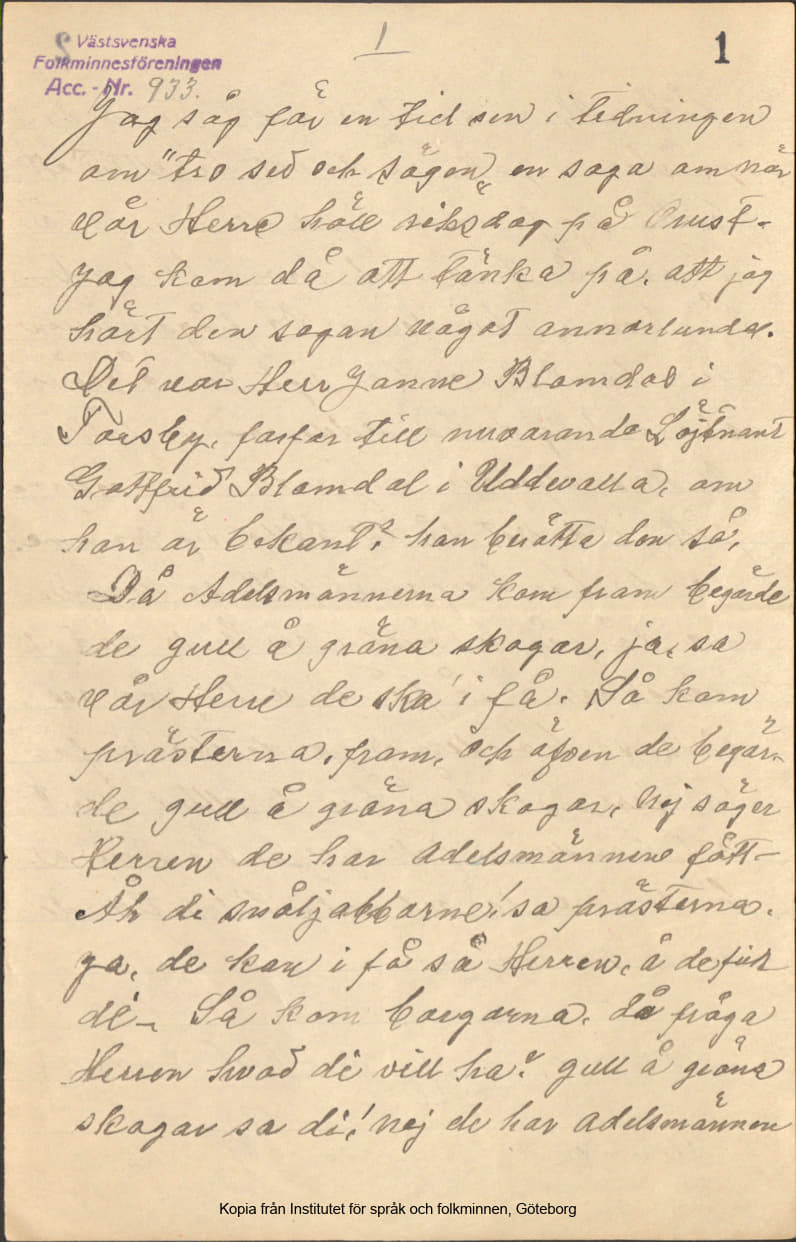 Västsvenska
Folkminnesföreningen
Acc.-Nr. 933.
1
1
Jag såg för en tid sen i tidningen
om "tro sed och sägen, en saga om när
vår Herre höll riksdag på Orust-
Jag kom då att tänka på, att jag
hört den sagan något annorlunda.
Det var Herr Janne Blomdal i
Torsby, farfar till nuvarande Löjtnant
Gottfrid Blomdal i Uddevalla, om
han är bekant? han berätta den så,
Då Adelsmännerna kom fram begärde
de gull å gröna skogar, ja, sa
vår Herre de ska' i få. Så kom
prästerna, fram, och äfven de begär-
de gull å gröna skogar, Nej säger
Herren de har adelsmännene fått-
Åh di snåljabbarne! sa prästerna.
ja, de kan i få så Herren, å de fick
dé-. Så kom borgarna, då fråga
Herren hvad di vill ha? gull å gröna
skogar sa di! nej de har adelsmännen
Kopia från Institutet för språk och folkminnen, Göteborg